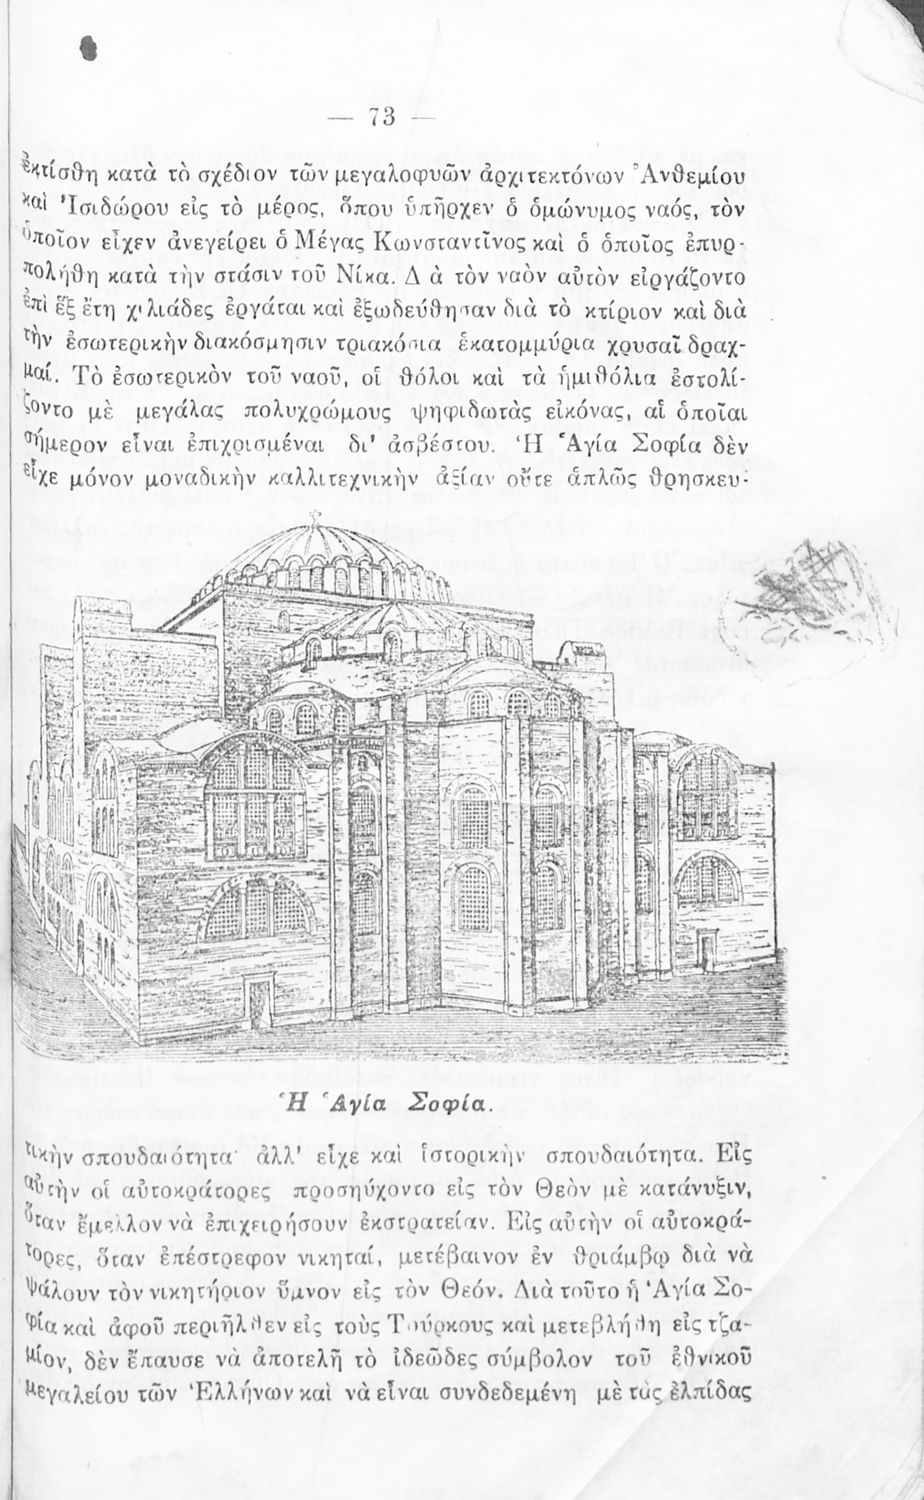 — 73 —
ἐκτίσθη κατὰ τὸ σχέδιον τῶν μεγαλοφυῶν ἀρχιτεκτόνων Ἀνθεμίου
καὶ Ἰσιδώρου εἰς τὸ μέρος, ὅπου ὑπῆρχεν ὁ ὁμώνυμος ναός, τὸν
ὁποῖον εἶχεν ἀνεγείρει ὁ Μέγας Κωνσταντῖνος καὶ ὁ ὁποῖος ἐπυρ-
πολήθη κατὰ τὴν στάσιν τοῦ Νίκα. Δ ὰ τὸν ναὸν αὐτὸν εἰργάζοντο
ἐπὶ ἓξ ἔτη χιλιάδες ἐργάται καὶ ἐξωδεύθησαν διὰ τὸ κτίριον καὶ διὰ
τὴν ἐσωτερικὴν διακόσμησιν τριακόσια ἑκατομμύρια χρυσαῖ δραχ-
μαί. Τὸ ἐσωτερικὸν τοῦ ναοῦ, οἱ θόλοι καὶ τὰ ἡμιθόλια ἐστολί-
ζοντο μὲ μεγάλας πολυχρώμους ψηφιδωτὰς εἰκόνας, αἱ ὁποῖαι
σήμερον εἶναι ἐπιχρισμέναι δι' ἀσβέστου. Ἡ Ἁγία Σοφία δὲν
εἶχε μόνον μοναδικὴν καλλιτεχνικὴν ἀξίαν οὔτε ἁπλῶς θρησκευ-
Ἡ Ἁγία Σοφία.
τικὴν σπουδαιότητα· ἀλλ' εἶχε καὶ ἱστορικὴν σπουδαιότητα. Εἰς
αὐτὴν οἱ αὐτοκράτορες προσηύχοντο εἰς τὸν Θεὸν μὲ κατάνυξιν,
ὅταν ἔμελλον νὰ ἐπιχειρήσουν ἐκστρατείαν. Εἰς αὐτὴν οἱ αὐτοκρά-
τορες, ὅταν ἐπέστρεφον νικηταί, μετέβαινον ἐν θριάμβῳ διὰ νὰ
ψάλουν τὸν νικητήριον ὕμνον εἰς τὸν Θεόν. Διὰ τοῦτο ἡ Ἁγία Σο-
φία καὶ ἀφοῦ περιῆλθεν εἰς τοὺς Τούρκους καὶ μετεβλήθη εἰς τζα-
μίον, δὲν ἔπαυσε νὰ ἀποτελῇ τὸ ἰδεῶδες σύμβολον τοῦ ἐθνικοῦ
μεγαλείου τῶν Ἑλλήνων καὶ νὰ εἶναι συνδεδεμένη μὲ τὰς ἐλπίδας